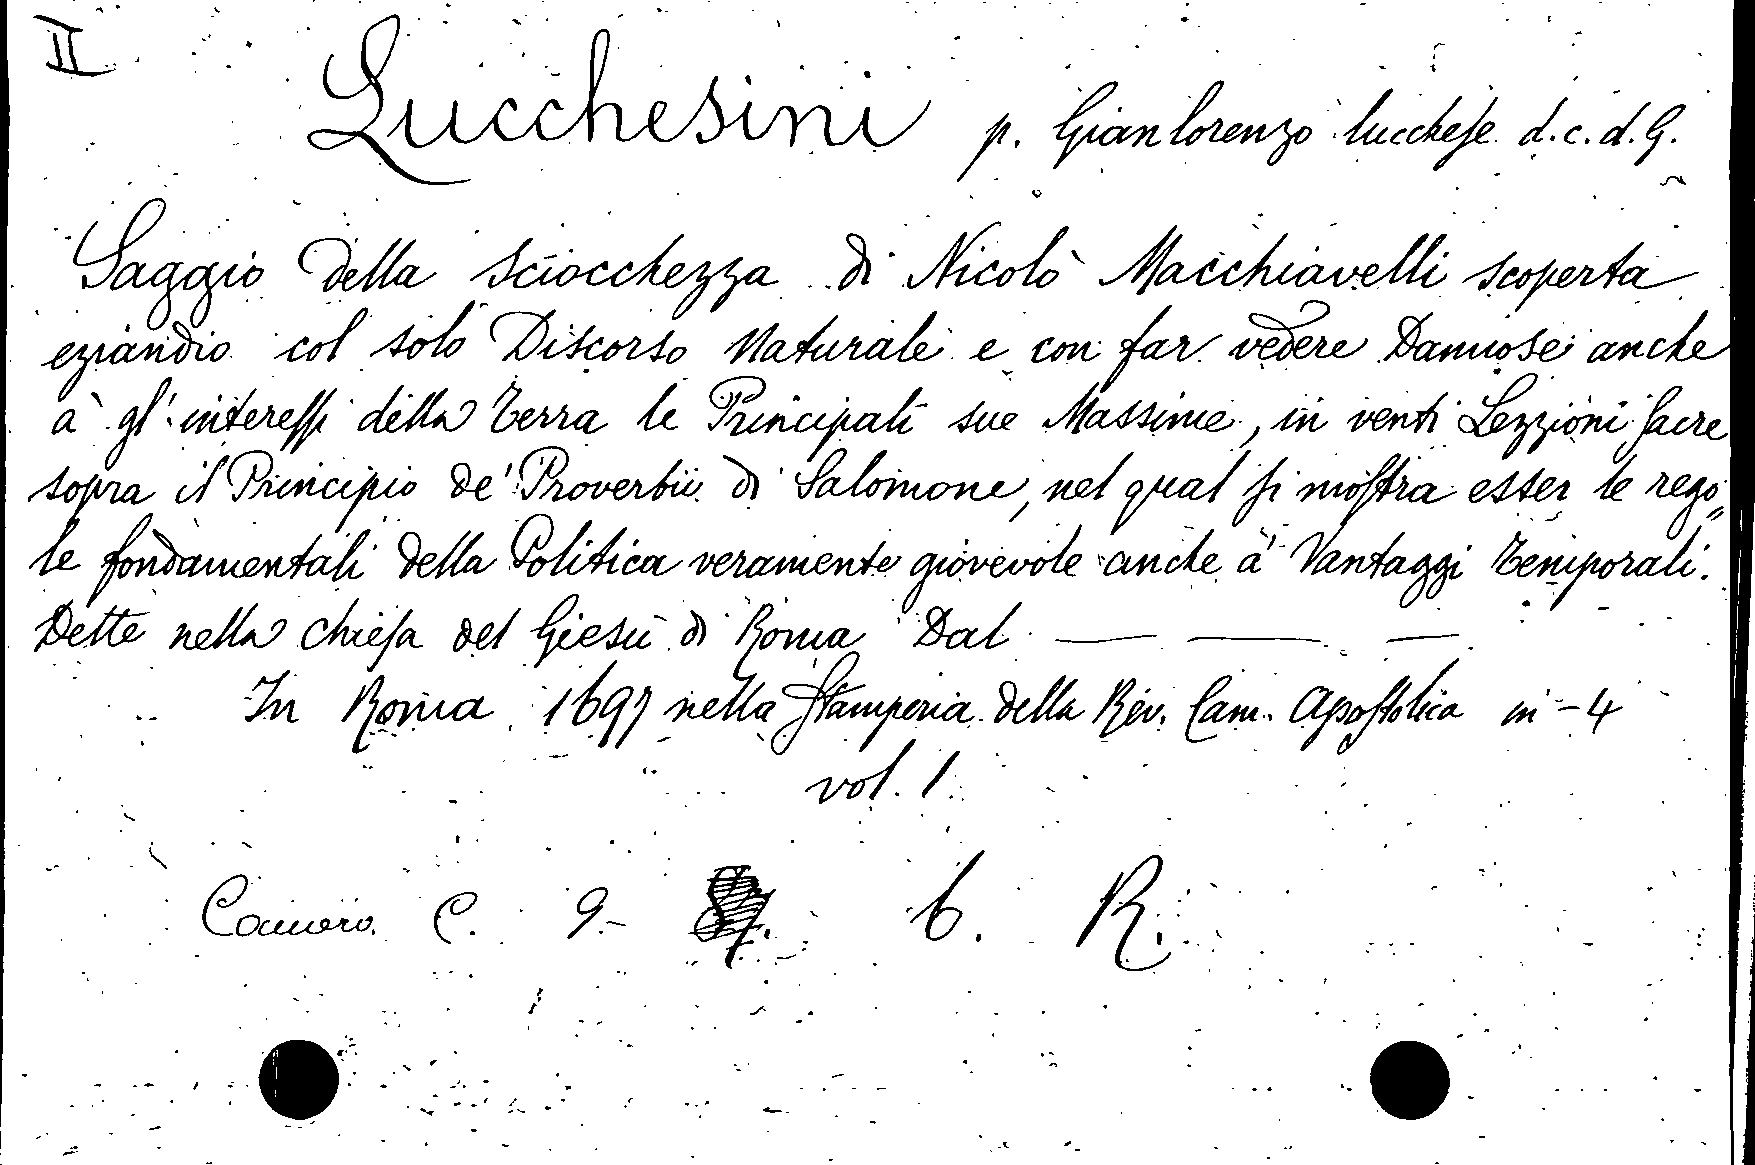 II
Lucchesini p. Gianlorenzo lucchese d.c.d.G.
Saggio della sciocchezza di Nicolò Macchiavelli scoperta
eziandio col solo Discorso Naturale e con far vedere Dannose anche
à gl' interessi della Terra le Principali sue Massime, in venti Lezzioni sacre
sopra il Principio de' Proverbii di Salomone, nel qual si mostra esser le rego„
le fondamentali della Politica veramente giovevole anche a' Vantaggi Temporali.
Dette nella chiesa del Giesù di Roma Dal — — —
In Roma 1697 nella Stamperia della Rev. Cam. Apostolica in-4
vol. 1.
Camera. C. 9- 6. R.